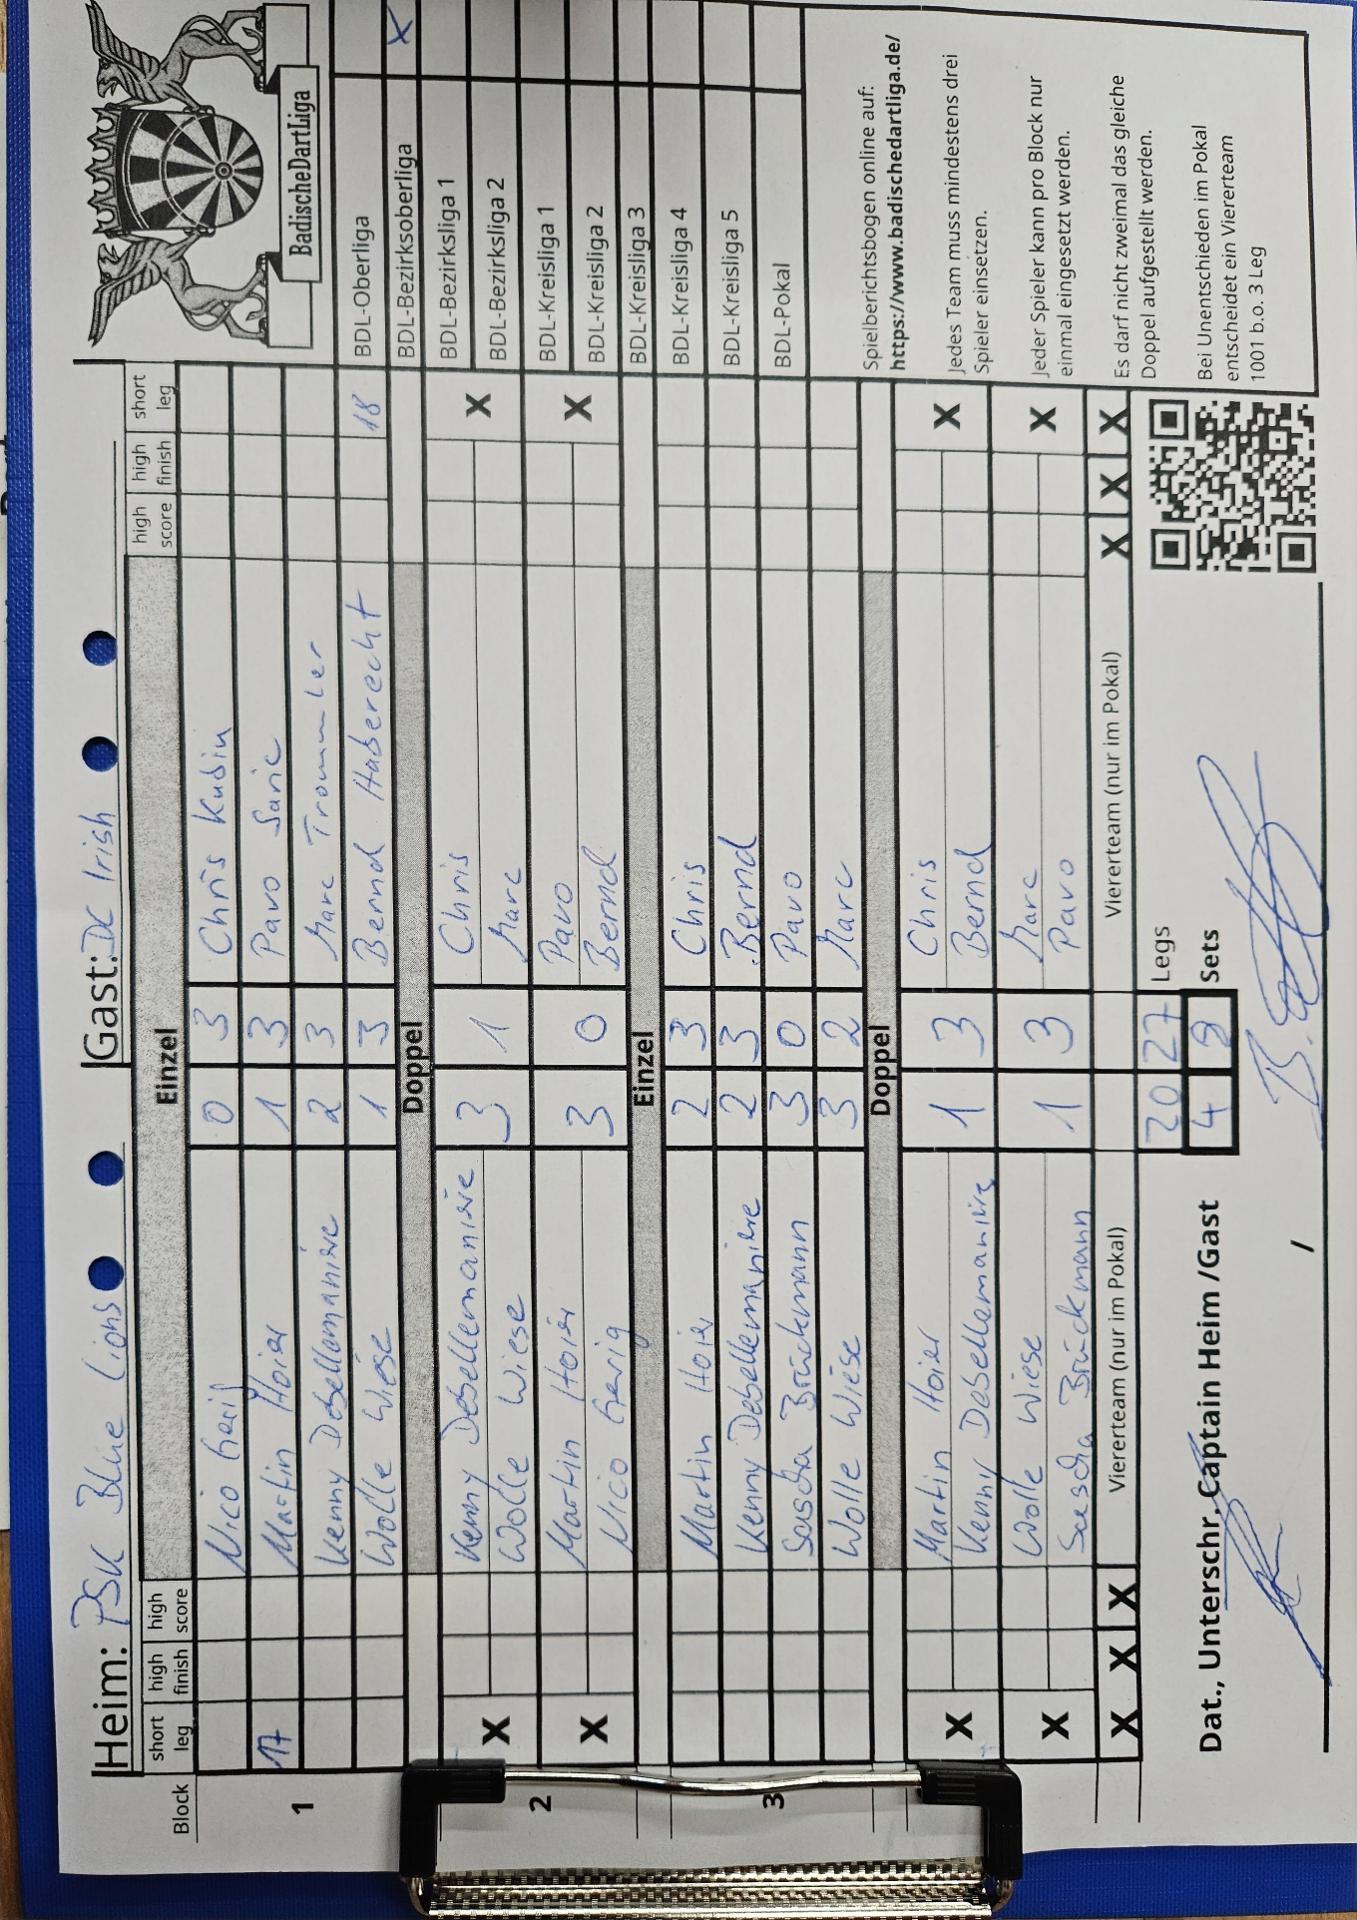 Heim: PSK Blue Lions Gast: DC Irish
BadischeDartLiga
Block short leg high finish high score Einzel high score high finish short leg
1
Nico Gerig 0 3 Chris Kubin
17 Martin Hoier 1 3 Pavo Saric
Kenny Debellemanière 2 3 Marc Trommler
Wolle Wiese 1 3 Bernd Haberecht 18
Doppel
2
X Kenny Debellemanière 3 1 Chris X
Wolle Wiese Marc
X Martin Hoier 3 0 Pavo X
Nico Gerig Bernd
Einzel
3
Martin Hoier 2 3 Chris
Kenny Debellemanière 2 3 Bernd
Sascha Brückmann 3 0 Pavo
Wolle Wiese 3 2 Marc
Doppel
X Martin Hoier 1 3 Chris X
Kenny Debellemanière Bernd
X Wolle Wiese 1 3 Marc X
Sascha Brückmann Pavo
X X X Viererteam (nur im Pokal) Viererteam (nur im Pokal) X X X
20 27 Legs
4 8 Sets
Dat., Unterschr. Captain Heim /Gast
/
BDL-Oberliga
BDL-Bezirksoberliga X
BDL-Bezirksliga 1
BDL-Bezirksliga 2
BDL-Kreisliga 1
BDL-Kreisliga 2
BDL-Kreisliga 3
BDL-Kreisliga 4
BDL-Kreisliga 5
BDL-Pokal
Spielberichtsbogen online auf:
https://www.badischedartliga.de/
Jedes Team muss mindestens drei
Spieler einsetzen.
Jeder Spieler kann pro Block nur
einmal eingesetzt werden.
Es darf nicht zweimal das gleiche
Doppel aufgestellt werden.
Bei Unentschieden im Pokal
entscheidet ein Viererteam
1001 b.o. 3 Leg